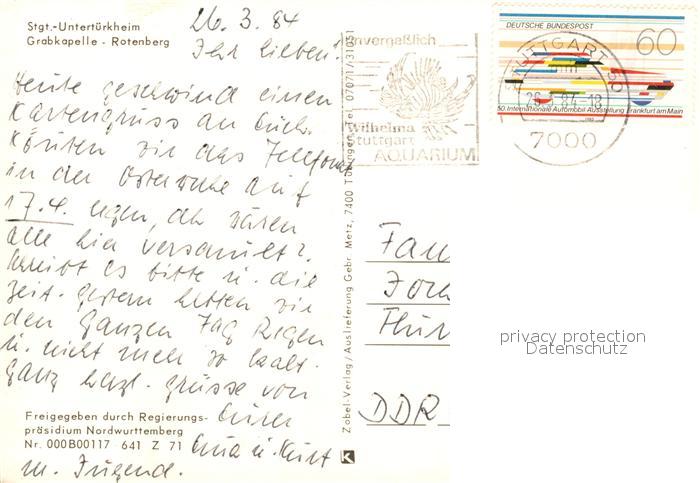 Stgt.-Untertürkheim
Grabkapelle - Rotenberg
26.3.84
Ihr Lieben!
Heute geschwind einen
Kartengruss an Euch.
Könnten wir das Telefonat
in der Osterwoche auf
17.4. legen, da wären
alle hier versammelt?
Schreibt es bitte u. die
Zeit. Gestern hatten wir
den ganzen Tag Regen
u. nicht mehr so kalt.
Ganz herzl. Grüsse von
Eurer
u. Kurt
m. Jugend.
Freigegeben durch Regierungs-
präsidium Nordwürttemberg
Nr. 000B00117 641 Z 71
Zobel-Verlag/Auslieferung Gebr. Metz, 7400 Tübingen, Tel. 07071/31051
K
unvergeßlich
Wilhelma
Stuttgart
AQUARIUM
STUTTGART 30
26.3.84-18
7000
DEUTSCHE BUNDESPOST
60
50. Internationale Automobil-Ausstellung Frankfurt am Main
Fam
DDR
privacy protection
Datenschutz